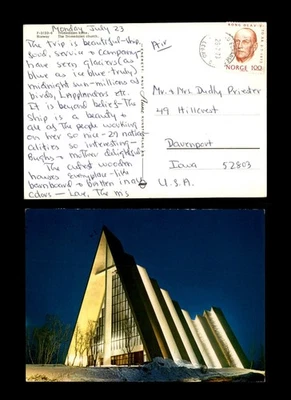 Monday July 23
Norway
The trip is beautiful - ship,
food, service & company -
have seen glaciers (as
blue as ice blue - truly)
midnight sun - millions of
birds, Lapplanders etc.
It is beyond belief - The
Ship is a beauty &
all of The people working
on her so nice - 27 nation-
alities so interesting -
Bughs & mother delightful
The cutest wooden
houses everyplace - like
barnboard &
colors - Love, The
Priv
NORGE 100
Mr & Mrs. Dudly Priester
49 Hillcrest
Davenport
Iowa 52803
U.S.A.